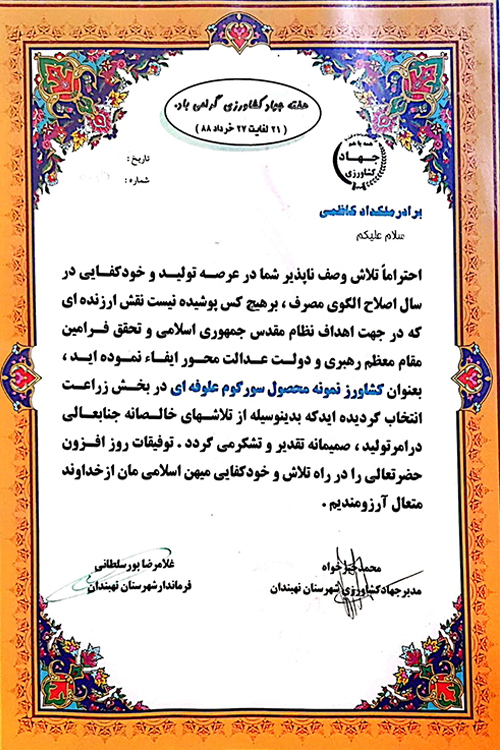 هفته جهاد کشاورزی گرامی باد.
( ۲۱ لغایت ۲۷ خرداد ۸۸ )
همه با هم
جهاد
کشاورزی
تاریخ :
شماره :
برادر ملکداد کاظمی
سلام علیکم
احتراماً تلاش وصف ناپذیر شما در عرصه تولید و خودکفایی در
سال اصلاح الگوی مصرف ، برهیچ کس پوشیده نیست نقش ارزنده ای
که در جهت اهداف نظام مقدس جمهوری اسلامی و تحقق فرامین
مقام معظم رهبری و دولت عدالت محور ایفاء نموده اید ،
بعنوان کشاورز نمونه محصول سورگوم علوفه ای در بخش زراعت
انتخاب گردیده ایدکه بدینوسیله از تلاشهای خالصانه جنابعالی
درامرتولید ، صمیمانه تقدیر و تشکرمی گردد . توفیقات روز افزون
حضرتعالی را در راه تلاش و خودکفایی میهن اسلامی مان ازخداوند
متعال آرزومندیم .
محمد خواه
مدیرجهادکشاورزی شهرستان نهبندان
غلامرضا پورسلطانی
فرماندارشهرستان نهبندان